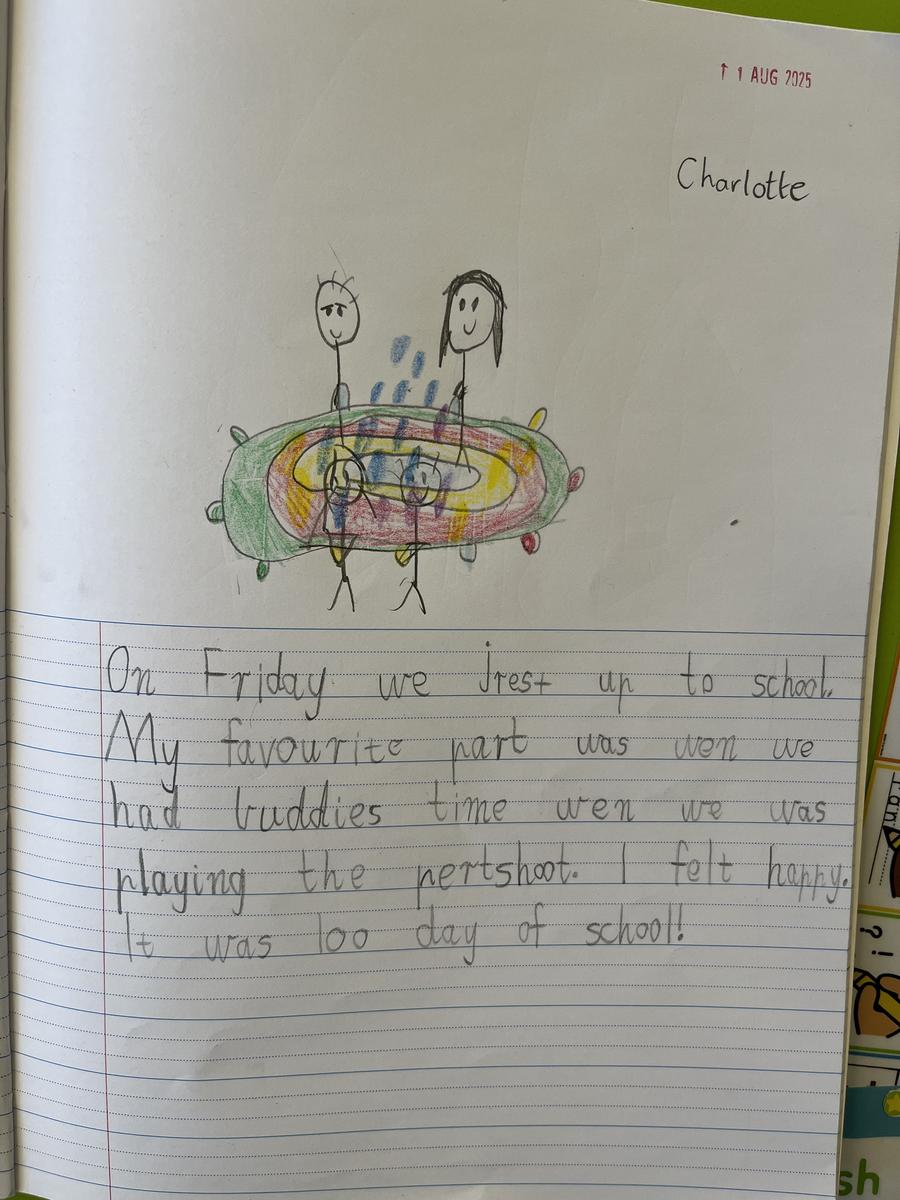 ↑ 1 AUG 2025
Charlotte
On Friday we jrest up to school.
My favourite part was wen we
had buddies time wen we was
playing the pertshoot. I felt happy.
It was 100 day of school!
? !
sh